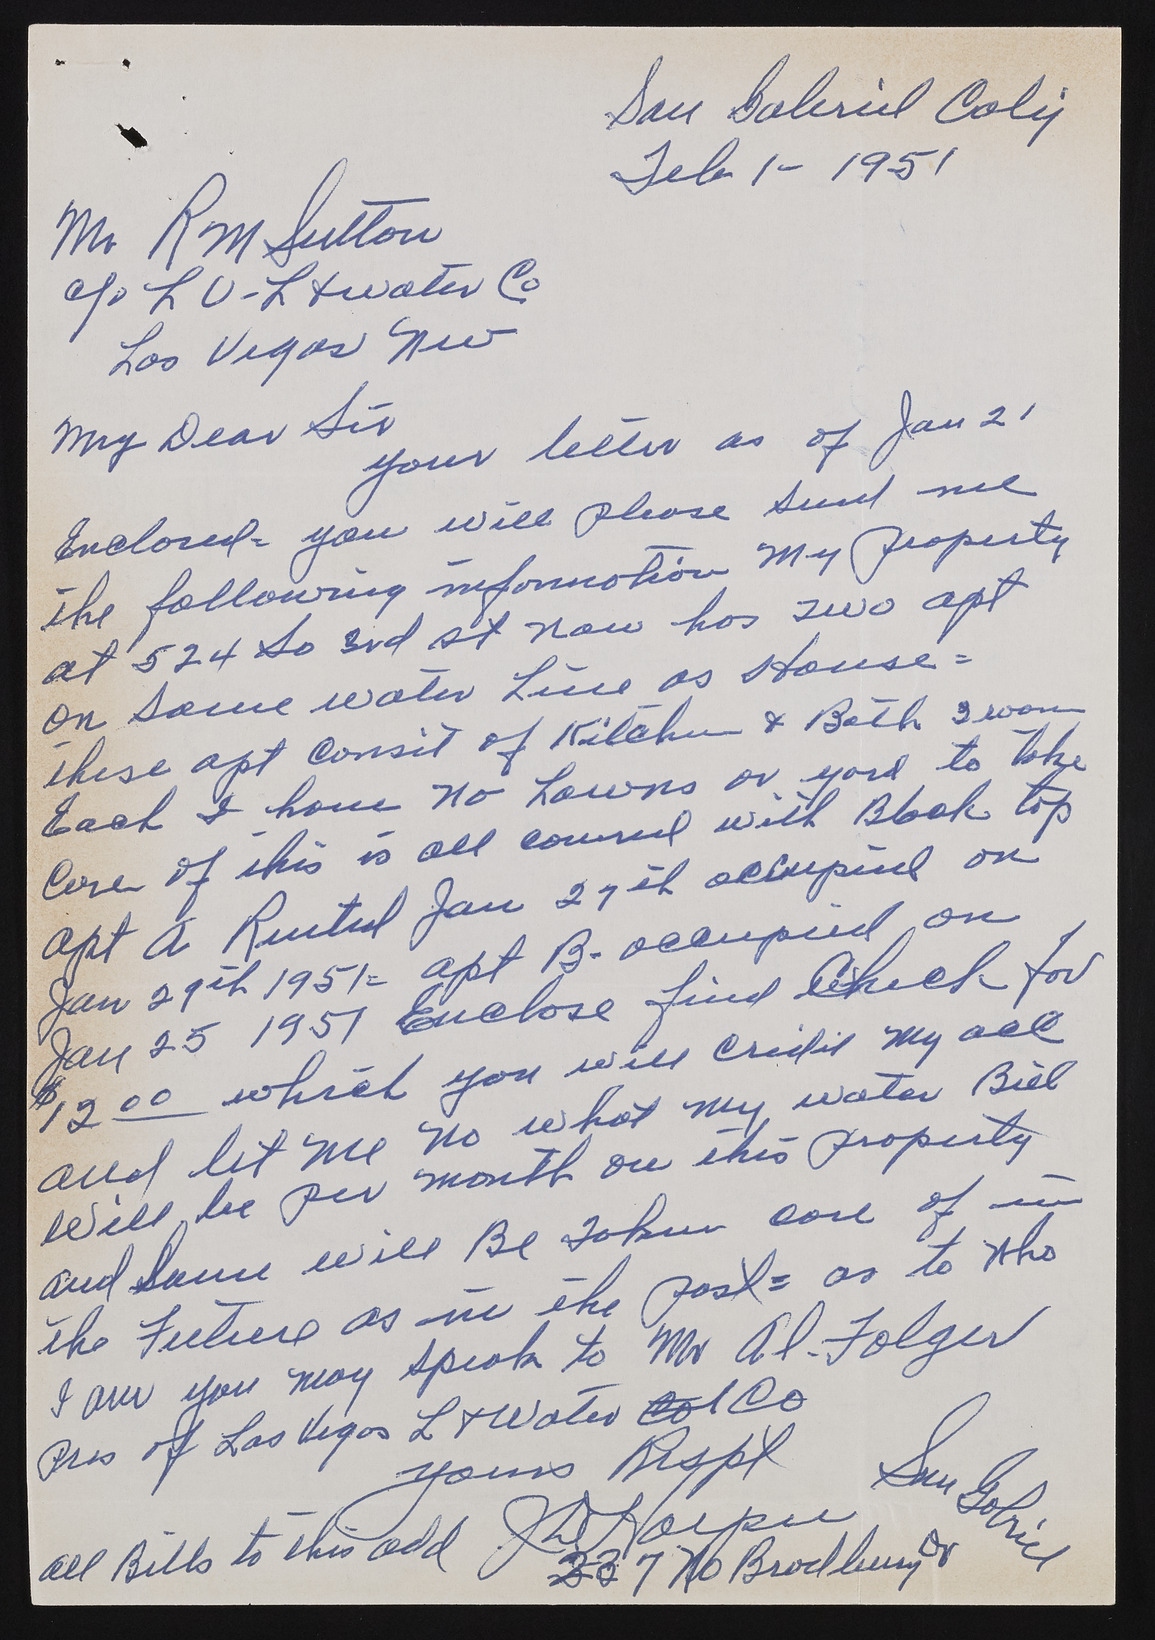 San Gabriel Calif
Feb 1- 1951
Mr R M Sutton
c/o L V - L & water Co
Los Vegas Nev
My Dear Sir
your letter as of Jan 21
Enclosed= you will please send me
the following information My property
at 524 So 3rd st now has two apt
on same water Line as House=
these apt consit of Kitchen & Bath 3 room
Each I have no Lawns or yard to take
Care of this is all covered with Black top
apt A Rented Jan 27th occupied on
Jan 29th 1951= apt B- occupied on
Jan 25 1951 Enclose find Check for
$12 00 which you will cridit my acc
and let me no what my water Bill
will be per month on this property
and same will Be Taken care of in
the Future as in the past= as to Who
I am you may speak to Mr Al- Folger
Pres of Las Vegas L & Water Co
yours Respt
J D
all Bills to this add 337 No Bradbury Dr
San Gabriel